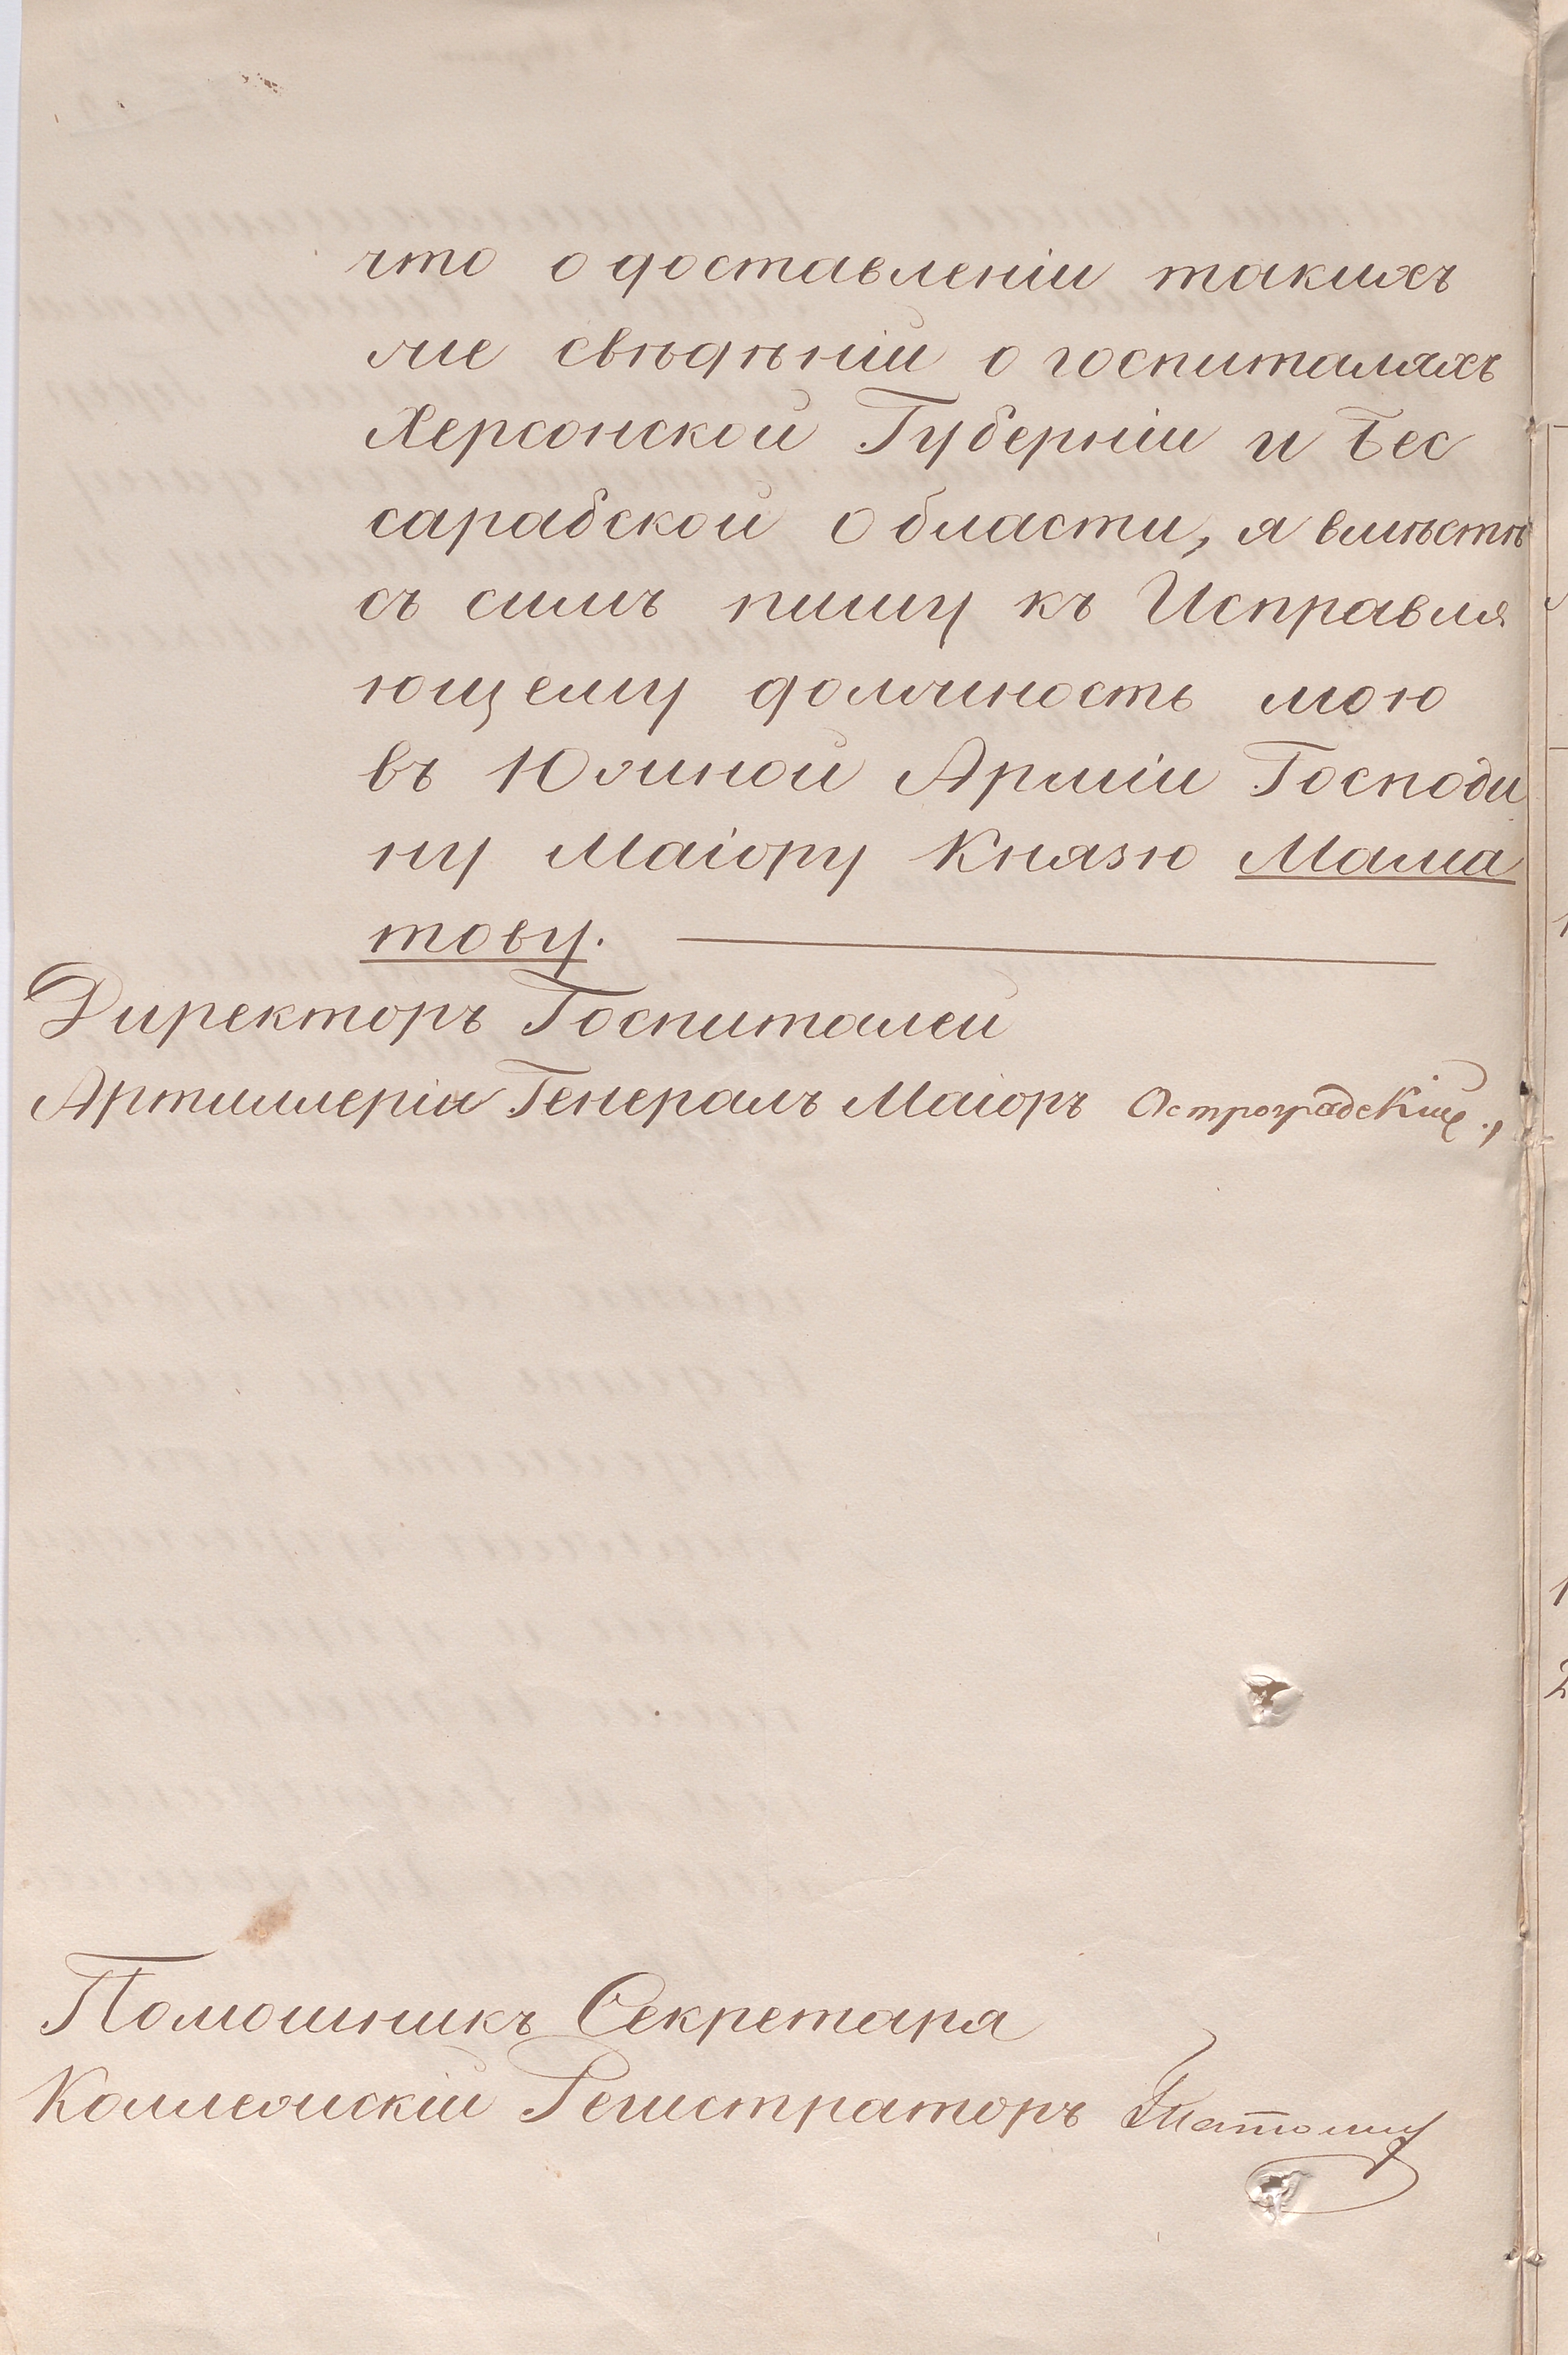 что о доставленіи такихъ
же свѣдѣній о госпиталяхъ
Херсонской Губерніи и Бес
сарабской Области, я вмѣстѣ
съ симъ пишу къ Исправля
ющему должность мою
въ Южной Арміи Господи
ну Маіору Князю Мама
тову.
Директоръ Госпиталей
Артиллеріи Генералъ Маіоръ Остроградскій
Помошникъ Секретаря
Коллежскій Регистраторъ